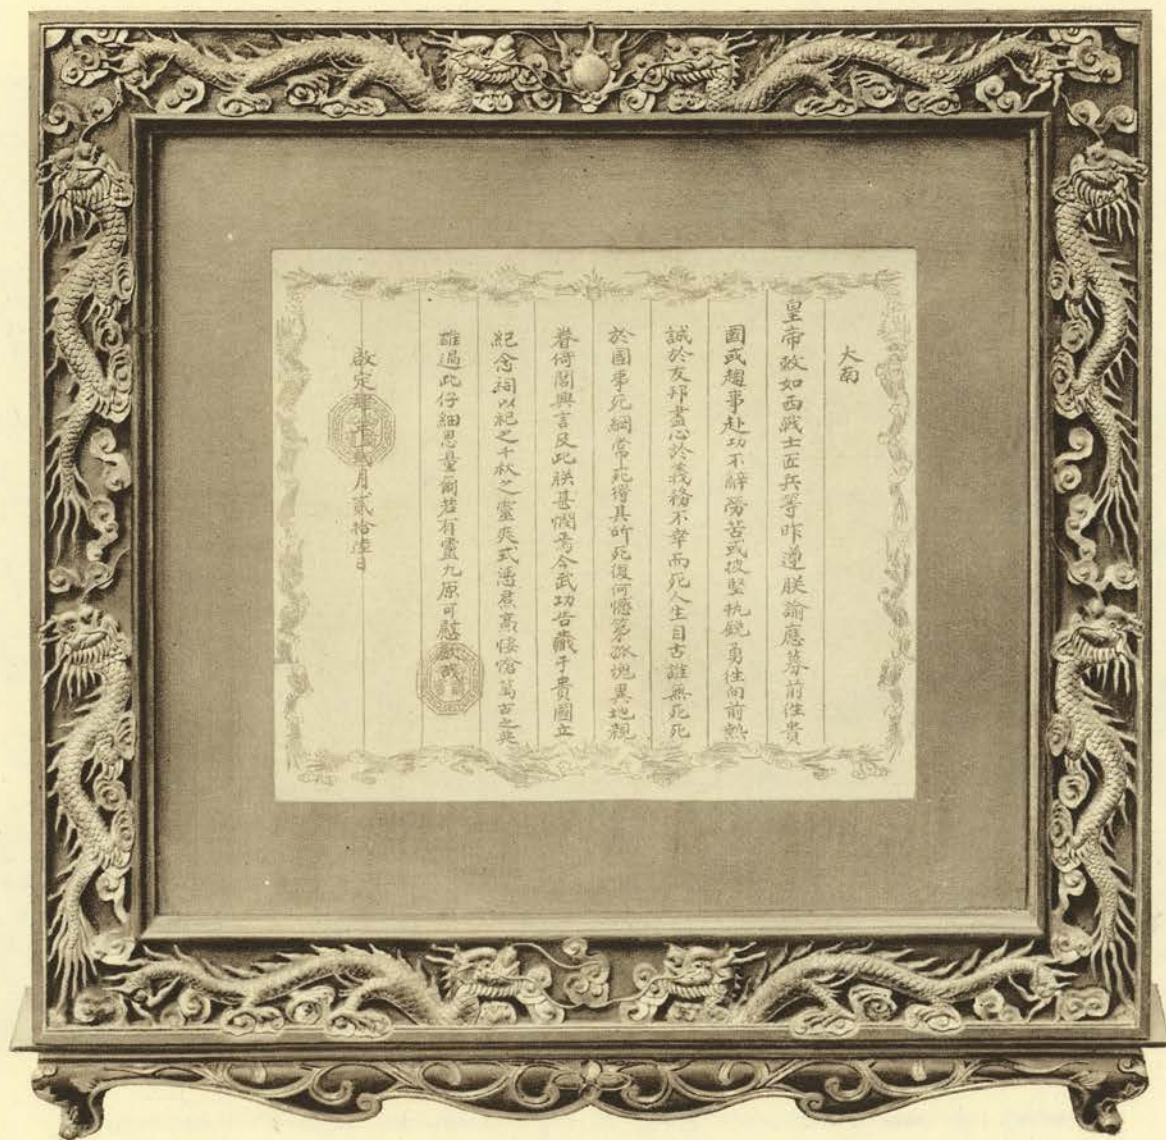 大南
皇帝敕如西戰士匠兵等昨遵朕諭應募前往貴
國或趨事赴功不辭勞苦或披堅執銳勇往向前熱
誠於友邦盡心於義務不幸而死人生自古誰無死死
於國事死綱常死得其所死復何憾第孤魂異地親
眷倚閭興言及此朕甚憫焉今武功告蕆于貴國立
紀念祠以祀之千秋之靈爽式憑焄蒿悽愴萬古之英
雄過此仔細思量爾若有靈九原可慰欽哉
啟定肆年貳月貳拾陸日